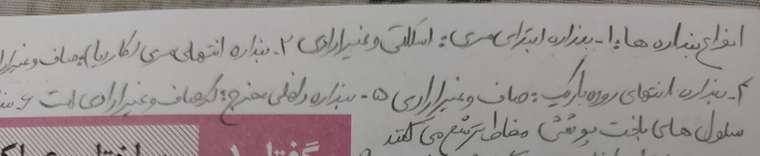 انواع بنداره ها: ۱- بنداره ابتدای مری: اسکلتی و غیرارادی ۲- بنداره انتهای مری (کاردیا): صاف و غیرارا
۴- بنداره انتهای روده باریک: صاف و غیرارادی ۵- بنداره داخلی مخرج: که صاف و غیرارادی است ۶
سلول های بافت پوششی مخاط ترشح می کنند
گفتار ۱